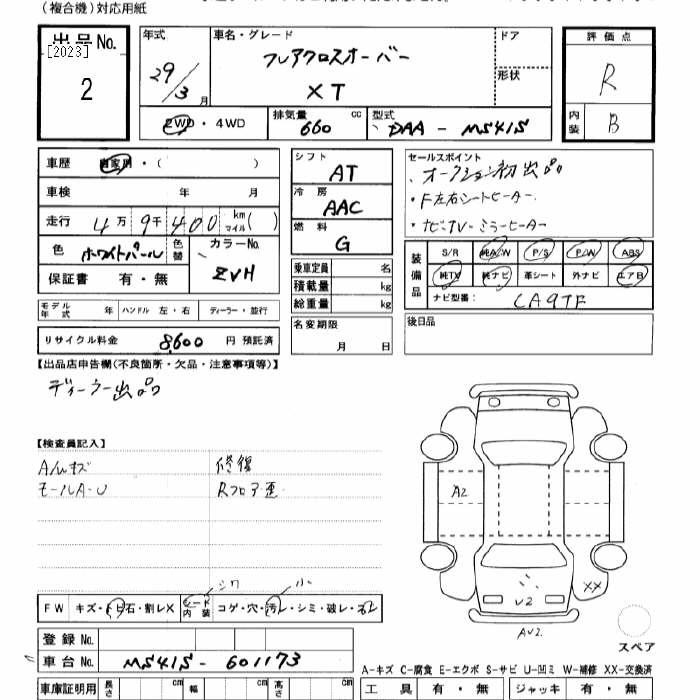 (複合機)対応用紙
出品No.
[2023]
2
年式
29/3月
車名・グレード
フレアクロスオーバー
XT
ドア
形状
評価点
R
内装
B
2WD・4WD
排気量
660 cc
型式
DAA - MS41S
車歴 自家用・( )
車検 年 月
走行 4万9千400 km マイル( )
色 ホワイトパール
色替
カラーNo.
ZVH
保証書 有・無
モデル年式 年 ハンドル 左・右 ディーラー・並行
リサイクル料金 8600 円 預託済
シフト
AT
冷房
AAC
燃料
G
乗車定員 名
積載量 kg
総重量 kg
名変期限
月 日
セールスポイント
・オークション初出品
・F左右シートヒーター
・ナビTV・ミラーヒーター
装備品
S/R 純A/W P/S P/W ABS
純TV 純ナビ 革シート 外ナビ エアB
ナビ型番: CA9TF
後日品
【出品店申告欄(不良箇所・欠品・注意事項等)】
ディーラー出品
【検査員記入】
A小キズ
モールA-U
修復
Rフロア歪
A2
V2
AV2.
XX
スペア
シワ
小
FW キズ・トビ石・割レX シート内装 コゲ・穴・汚レ・シミ・破レ・スレ
登録No.
車台No. MS41S - 601173
A-キズ C-腐食 E-エクボ S-サビ U-凹ミ W-補修 XX-交換済
車庫証明用 長さ cm 幅 cm 高さ cm
工具 有・無 ジャッキ 有・無